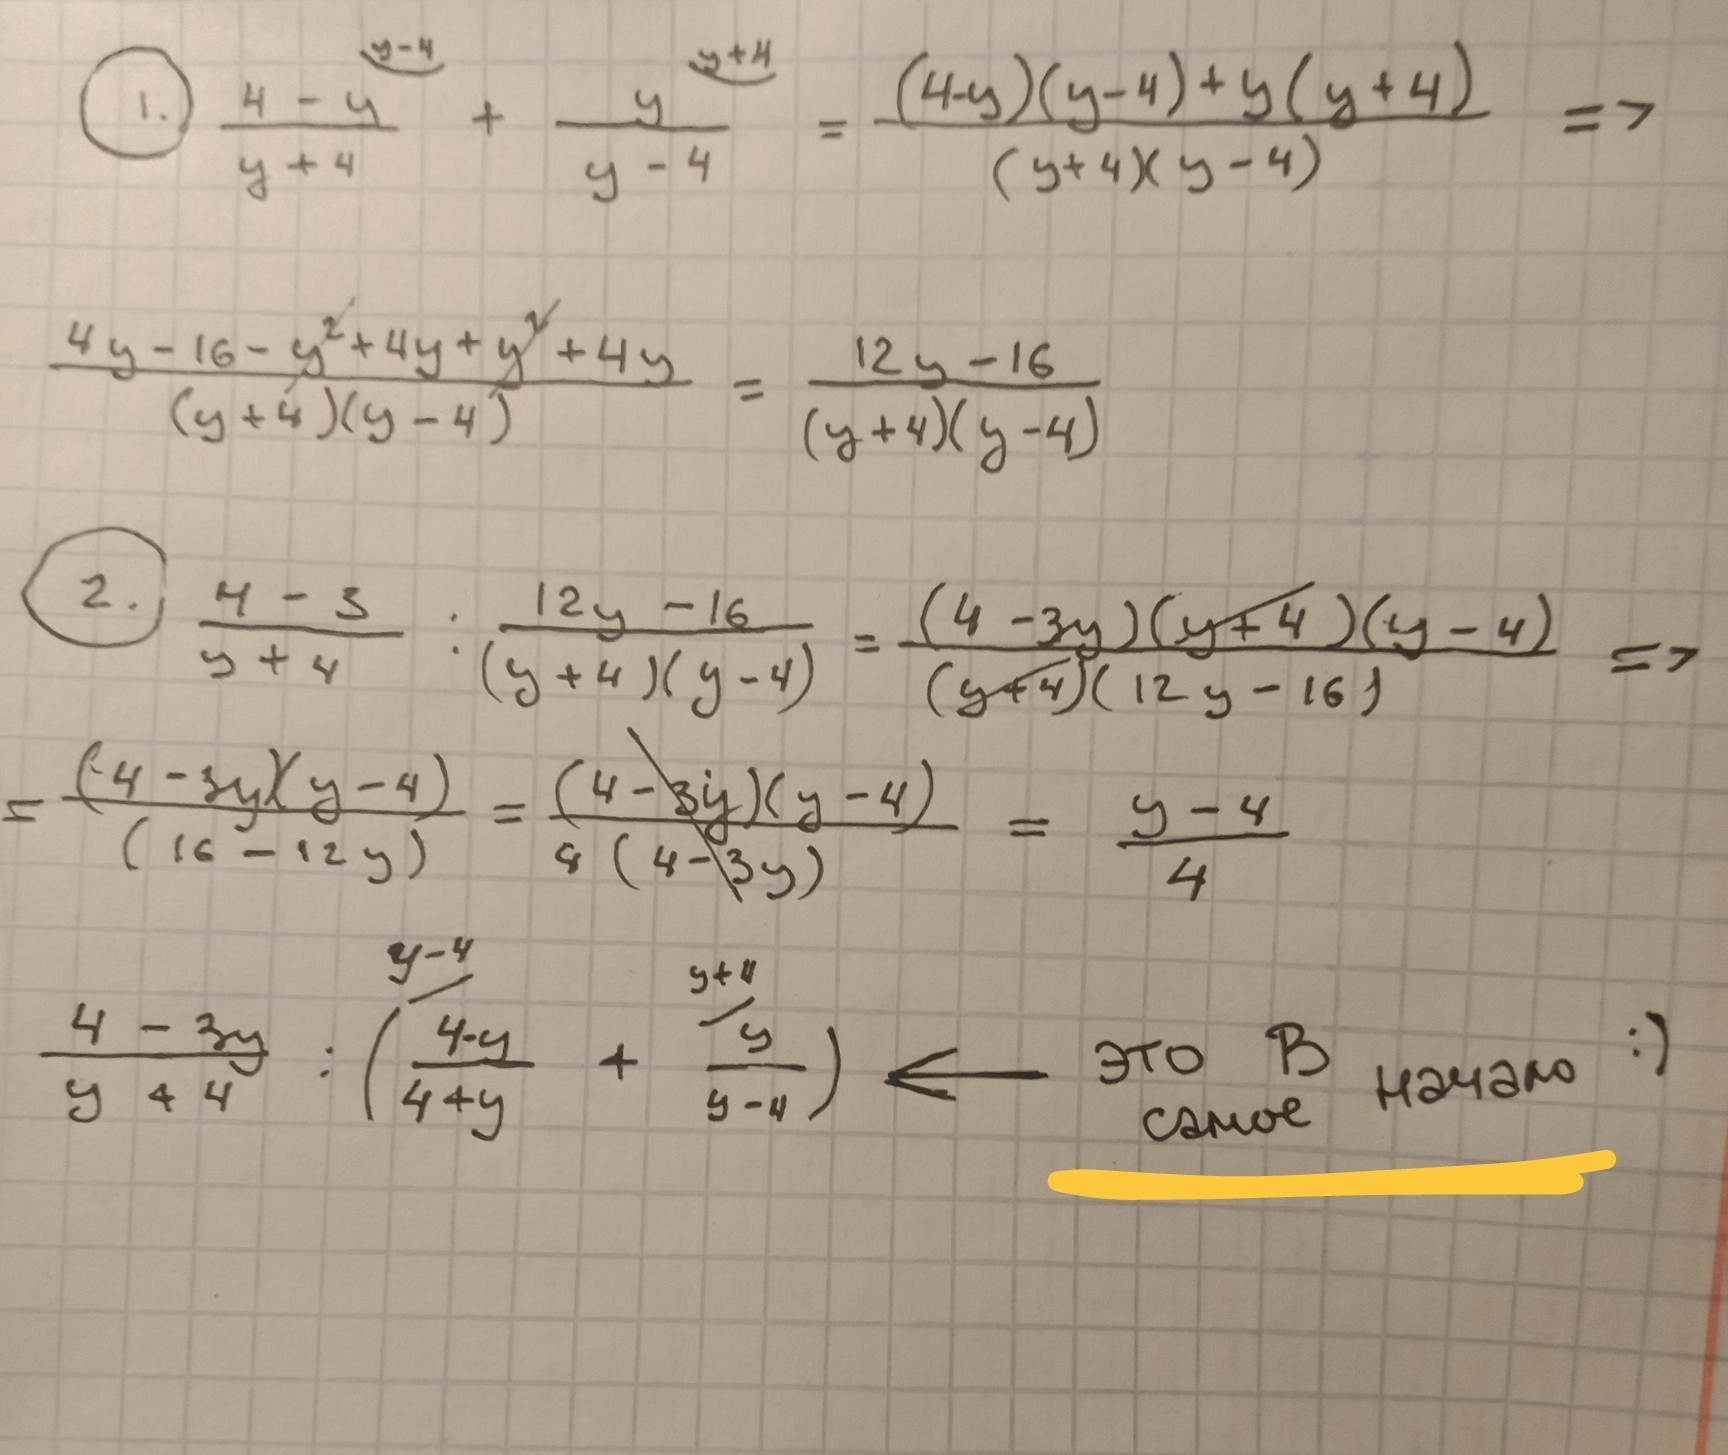 1. (4 - y)/(y + 4) [y-4] + y/(y - 4) [y+4] = ((4-y)(y-4)+y(y+4))/((y+4)(y-4)) =>
(4y-16-y²+4y+y²+4y)/((y+4)(y-4)) = (12y-16)/((y+4)(y-4))
2. (4-3)/(y+4) : (12y-16)/((y+4)(y-4)) = ((4-3y)(y+4)(y-4))/((y+4)(12y-16)) =>
= ((-4-3y)(y-4))/((16-12y)) = ((4-3y)(y-4))/(4(4-3y)) = (y-4)/4
(4-3y)/(y+4) : ((4-y)/(4+y) [y-4] + y/(y-4) [y+4]) ← это в самое начало :)